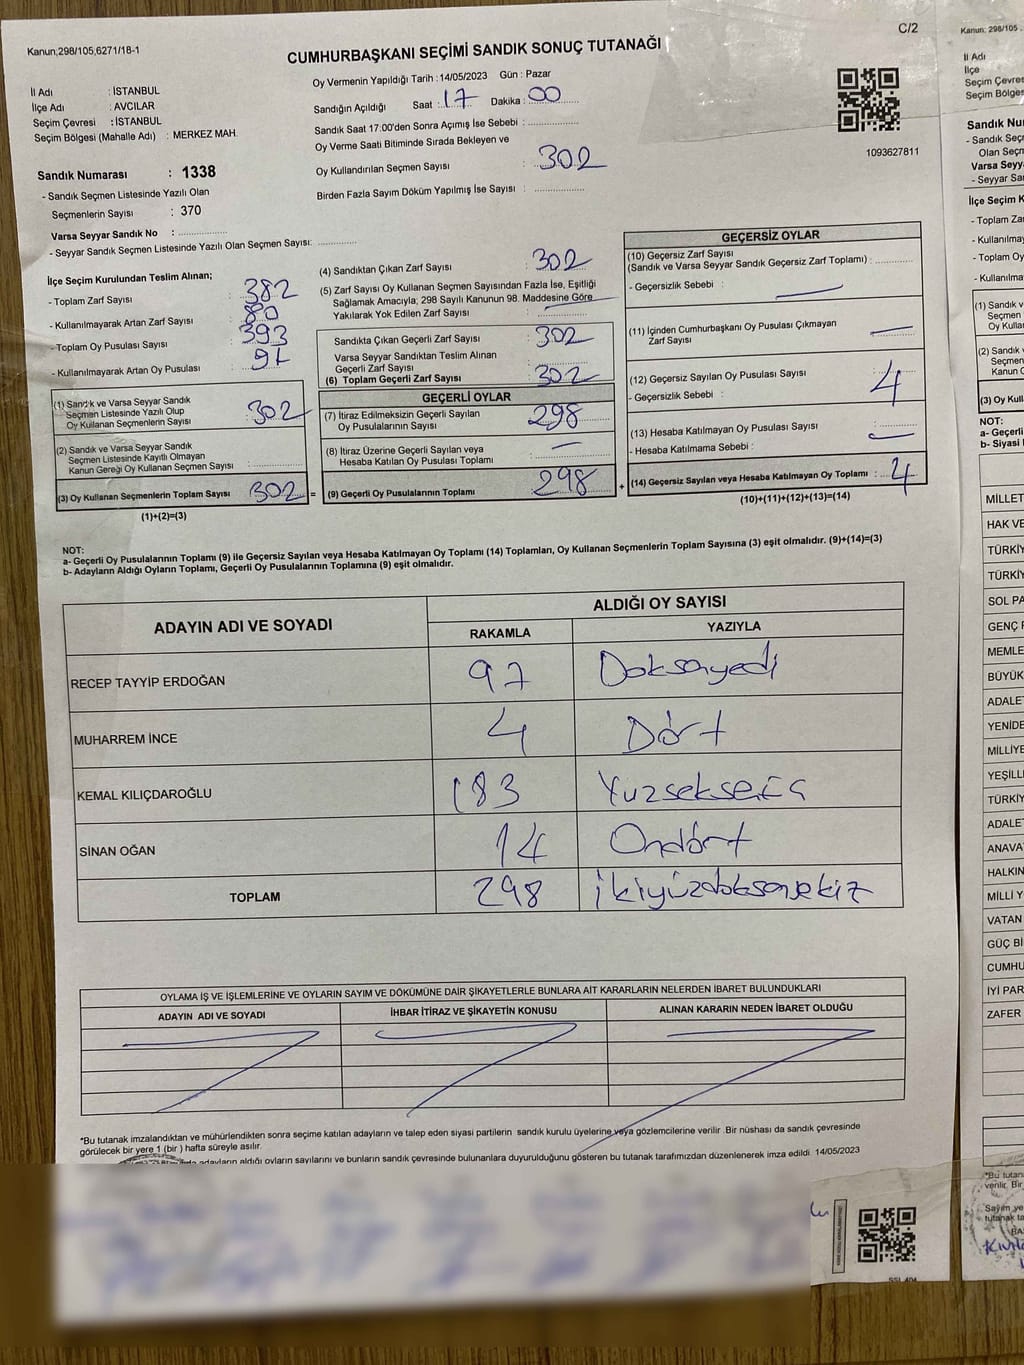 C/2
Kanun,298/105,6271/18-1
CUMHURBAŞKANI SEÇİMİ SANDIK SONUÇ TUTANAĞI
İl Adı : İSTANBUL
İlçe Adı : AVCILAR
Seçim Çevresi : İSTANBUL
Seçim Bölgesi (Mahalle Adı) : MERKEZ MAH.
Oy Vermenin Yapıldığı Tarih : 14/05/2023 Gün : Pazar
Sandığın Açıldığı Saat : 17 Dakika : 00
Sandık Saat 17:00'den Sonra Açımış İse Sebebi :
Oy Verme Saati Bitiminde Sırada Bekleyen ve
Oy Kullandırılan Seçmen Sayısı : 302
Birden Fazla Sayım Döküm Yapılmış İse Sayısı :
1093627811
Sandık Numarası : 1338
- Sandık Seçmen Listesinde Yazılı Olan
Seçmenlerin Sayısı : 370
Varsa Seyyar Sandık No :
- Seyyar Sandık Seçmen Listesinde Yazılı Olan Seçmen Sayısı:
İlçe Seçim Kurulundan Teslim Alınan;
- Toplam Zarf Sayısı : 382
- Kullanılmayarak Artan Zarf Sayısı : 80
- Toplam Oy Pusulası Sayısı : 393
- Kullanılmayarak Artan Oy Pusulası : 91
(1) Sandık ve Varsa Seyyar Sandık
Seçmen Listesinde Yazılı Olup
Oy Kullanan Seçmenlerin Sayısı : 302
(2) Sandık ve Varsa Seyyar Sandık
Seçmen Listesinde Kayıtlı Olmayan
Kanun Gereği Oy Kullanan Seçmen Sayısı :
(3) Oy Kullanan Seçmenlerin Toplam Sayısı 302 =
(1)+(2)=(3)
(4) Sandıktan Çıkan Zarf Sayısı : 302
(5) Zarf Sayısı Oy Kullanan Seçmen Sayısından Fazla İse, Eşitliği
Sağlamak Amacıyla; 298 Sayılı Kanunun 98. Maddesine Göre
Yakılarak Yok Edilen Zarf Sayısı :
Sandıkta Çıkan Geçerli Zarf Sayısı : 302
Varsa Seyyar Sandıktan Teslim Alınan
Geçerli Zarf Sayısı :
(6) Toplam Geçerli Zarf Sayısı : 302
GEÇERLİ OYLAR
(7) İtiraz Edilmeksizin Geçerli Sayılan
Oy Pusulalarının Sayısı : 298
(8) İtiraz Üzerine Geçerli Sayılan veya
Hesaba Katılan Oy Pusulası Toplamı :
(9) Geçerli Oy Pusulalarının Toplamı : 298 +
GEÇERSİZ OYLAR
(10) Geçersiz Zarf Sayısı
(Sandık ve Varsa Seyyar Sandık Geçersiz Zarf Toplamı) :
- Geçersizlik Sebebi :
(11) İçinden Cumhurbaşkanı Oy Pusulası Çıkmayan
Zarf Sayısı
(12) Geçersiz Sayılan Oy Pusulası Sayısı : 4
- Geçersizlik Sebebi :
(13) Hesaba Katılmayan Oy Pusulası Sayısı :
- Hesaba Katılmama Sebebi :
(14) Geçersiz Sayılan veya Hesaba Katılmayan Oy Toplamı : 4
(10)+(11)+(12)+(13)=(14)
NOT:
a- Geçerli Oy Pusulalarının Toplamı (9) ile Geçersiz Sayılan veya Hesaba Katılmayan Oy Toplamı (14) Toplamları, Oy Kullanan Seçmenlerin Toplam Sayısına (3) eşit olmalıdır. (9)+(14)=(3)
b- Adayların Aldığı Oyların Toplamı, Geçerli Oy Pusulalarının Toplamına (9) eşit olmalıdır.
ADAYIN ADI VE SOYADI ALDIĞI OY SAYISI
RAKAMLA YAZIYLA
RECEP TAYYİP ERDOĞAN 97 Doksanyedi
MUHARREM İNCE 4 Dört
KEMAL KILIÇDAROĞLU 183
SİNAN OĞAN 14 Ondört
TOPLAM 298 ikiyüzdoksansekiz
OYLAMA İŞ VE İŞLEMLERİNE VE OYLARIN SAYIM VE DÖKÜMÜNE DAİR ŞİKAYETLERLE BUNLARA AİT KARARLARIN NELERDEN İBARET BULUNDUKLARI
ADAYIN ADI VE SOYADI İHBAR İTİRAZ VE ŞİKAYETİN KONUSU ALINAN KARARIN NEDEN İBARET OLDUĞU
*Bu tutanak imzalandıktan ve mühürlendikten sonra seçime katılan adayların ve talep eden siyasi partilerin sandık kurulu üyelerine veya gözlemcilerine verilir .Bir nüshası da sandık çevresinde
görülecek bir yere 1 (bir ) hafta süreyle asılır.
adayların aldığı oyların sayılarını ve bunların sandık çevresinde bulunanlara duyurulduğunu gösteren bu tutanak tarafımızdan düzenlenerek imza edildi. 14/05/2023
Kanun; 298/105
İl Adı
İlçe
Seçim Çevres
Seçim Bölges
Sandık Nu
- Sandık Seç
Olan Seçm
Varsa Seyy
- Seyyar Sa
İlçe Seçim K
- Toplam Za
- Kullanılma
- Toplam Oy
- Kullanılma
(1) Sandık v
Seçmen
Oy Kulla
(2) Sandık
Seçmen
Kanun G
(3) Oy Kull
NOT:
a- Geçerli
b- Siyasi
MİLLET
HAK VE
TÜRKİY
TÜRKİ
SOL PA
GENÇ
MEMLE
BÜYÜK
ADALE
YENİDE
MİLLİYE
YEŞİLL
TÜRKİY
ADALE
ANAVA
HALKIN
MİLLİ Y
VATAN
GÜÇ Bİ
CUMHU
İYİ PAR
ZAFER
*Bu tutan
verilir. Bir
Sayım ve
tutanak ta